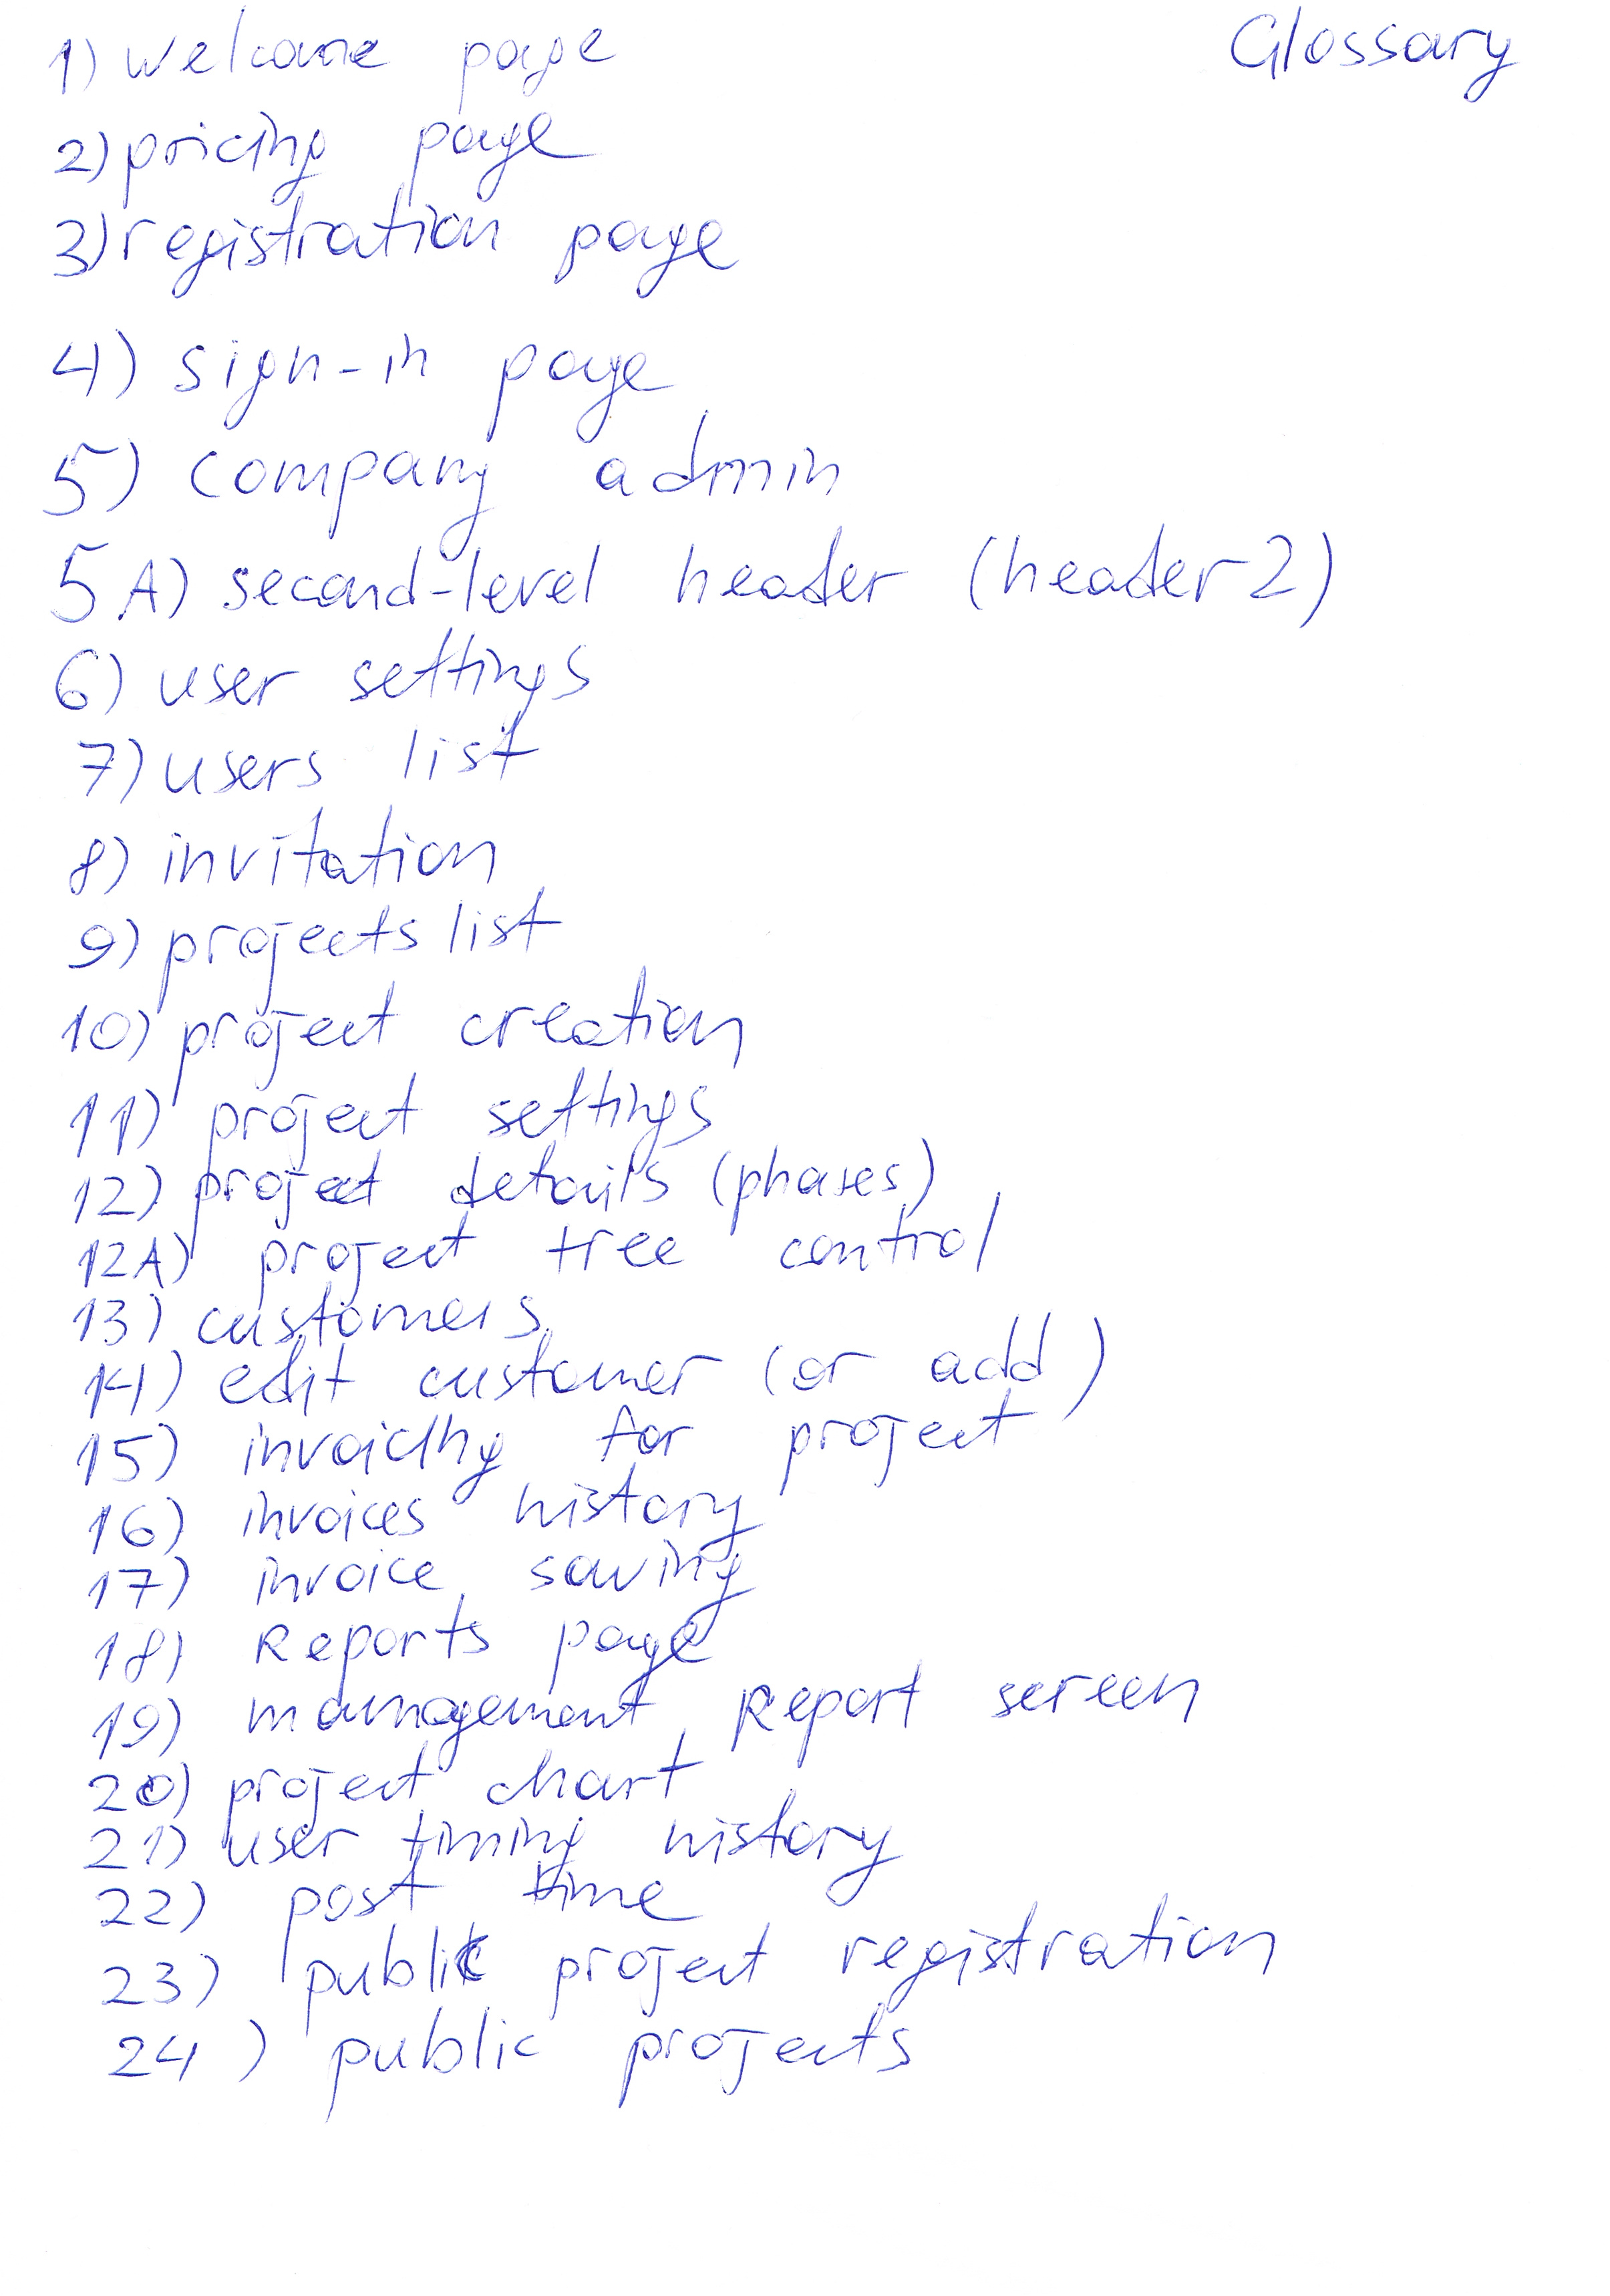 Glossary
1) welcome page
2) pricing page
3) registration page
4) sign-in page
5) company admin
5A) second-level header (header 2)
6) user settings
7) users list
8) invitation
9) projects list
10) project creation
11) project settings
12) project details (phases)
12A) project tree control
13) customers
14) edit customer (or add)
15) invoicing for project
16) invoices history
17) invoice saving
18) Reports page
19) management Report screen
20) project chart
21) user timing history
22) post time
23) public project registration
24) public projects